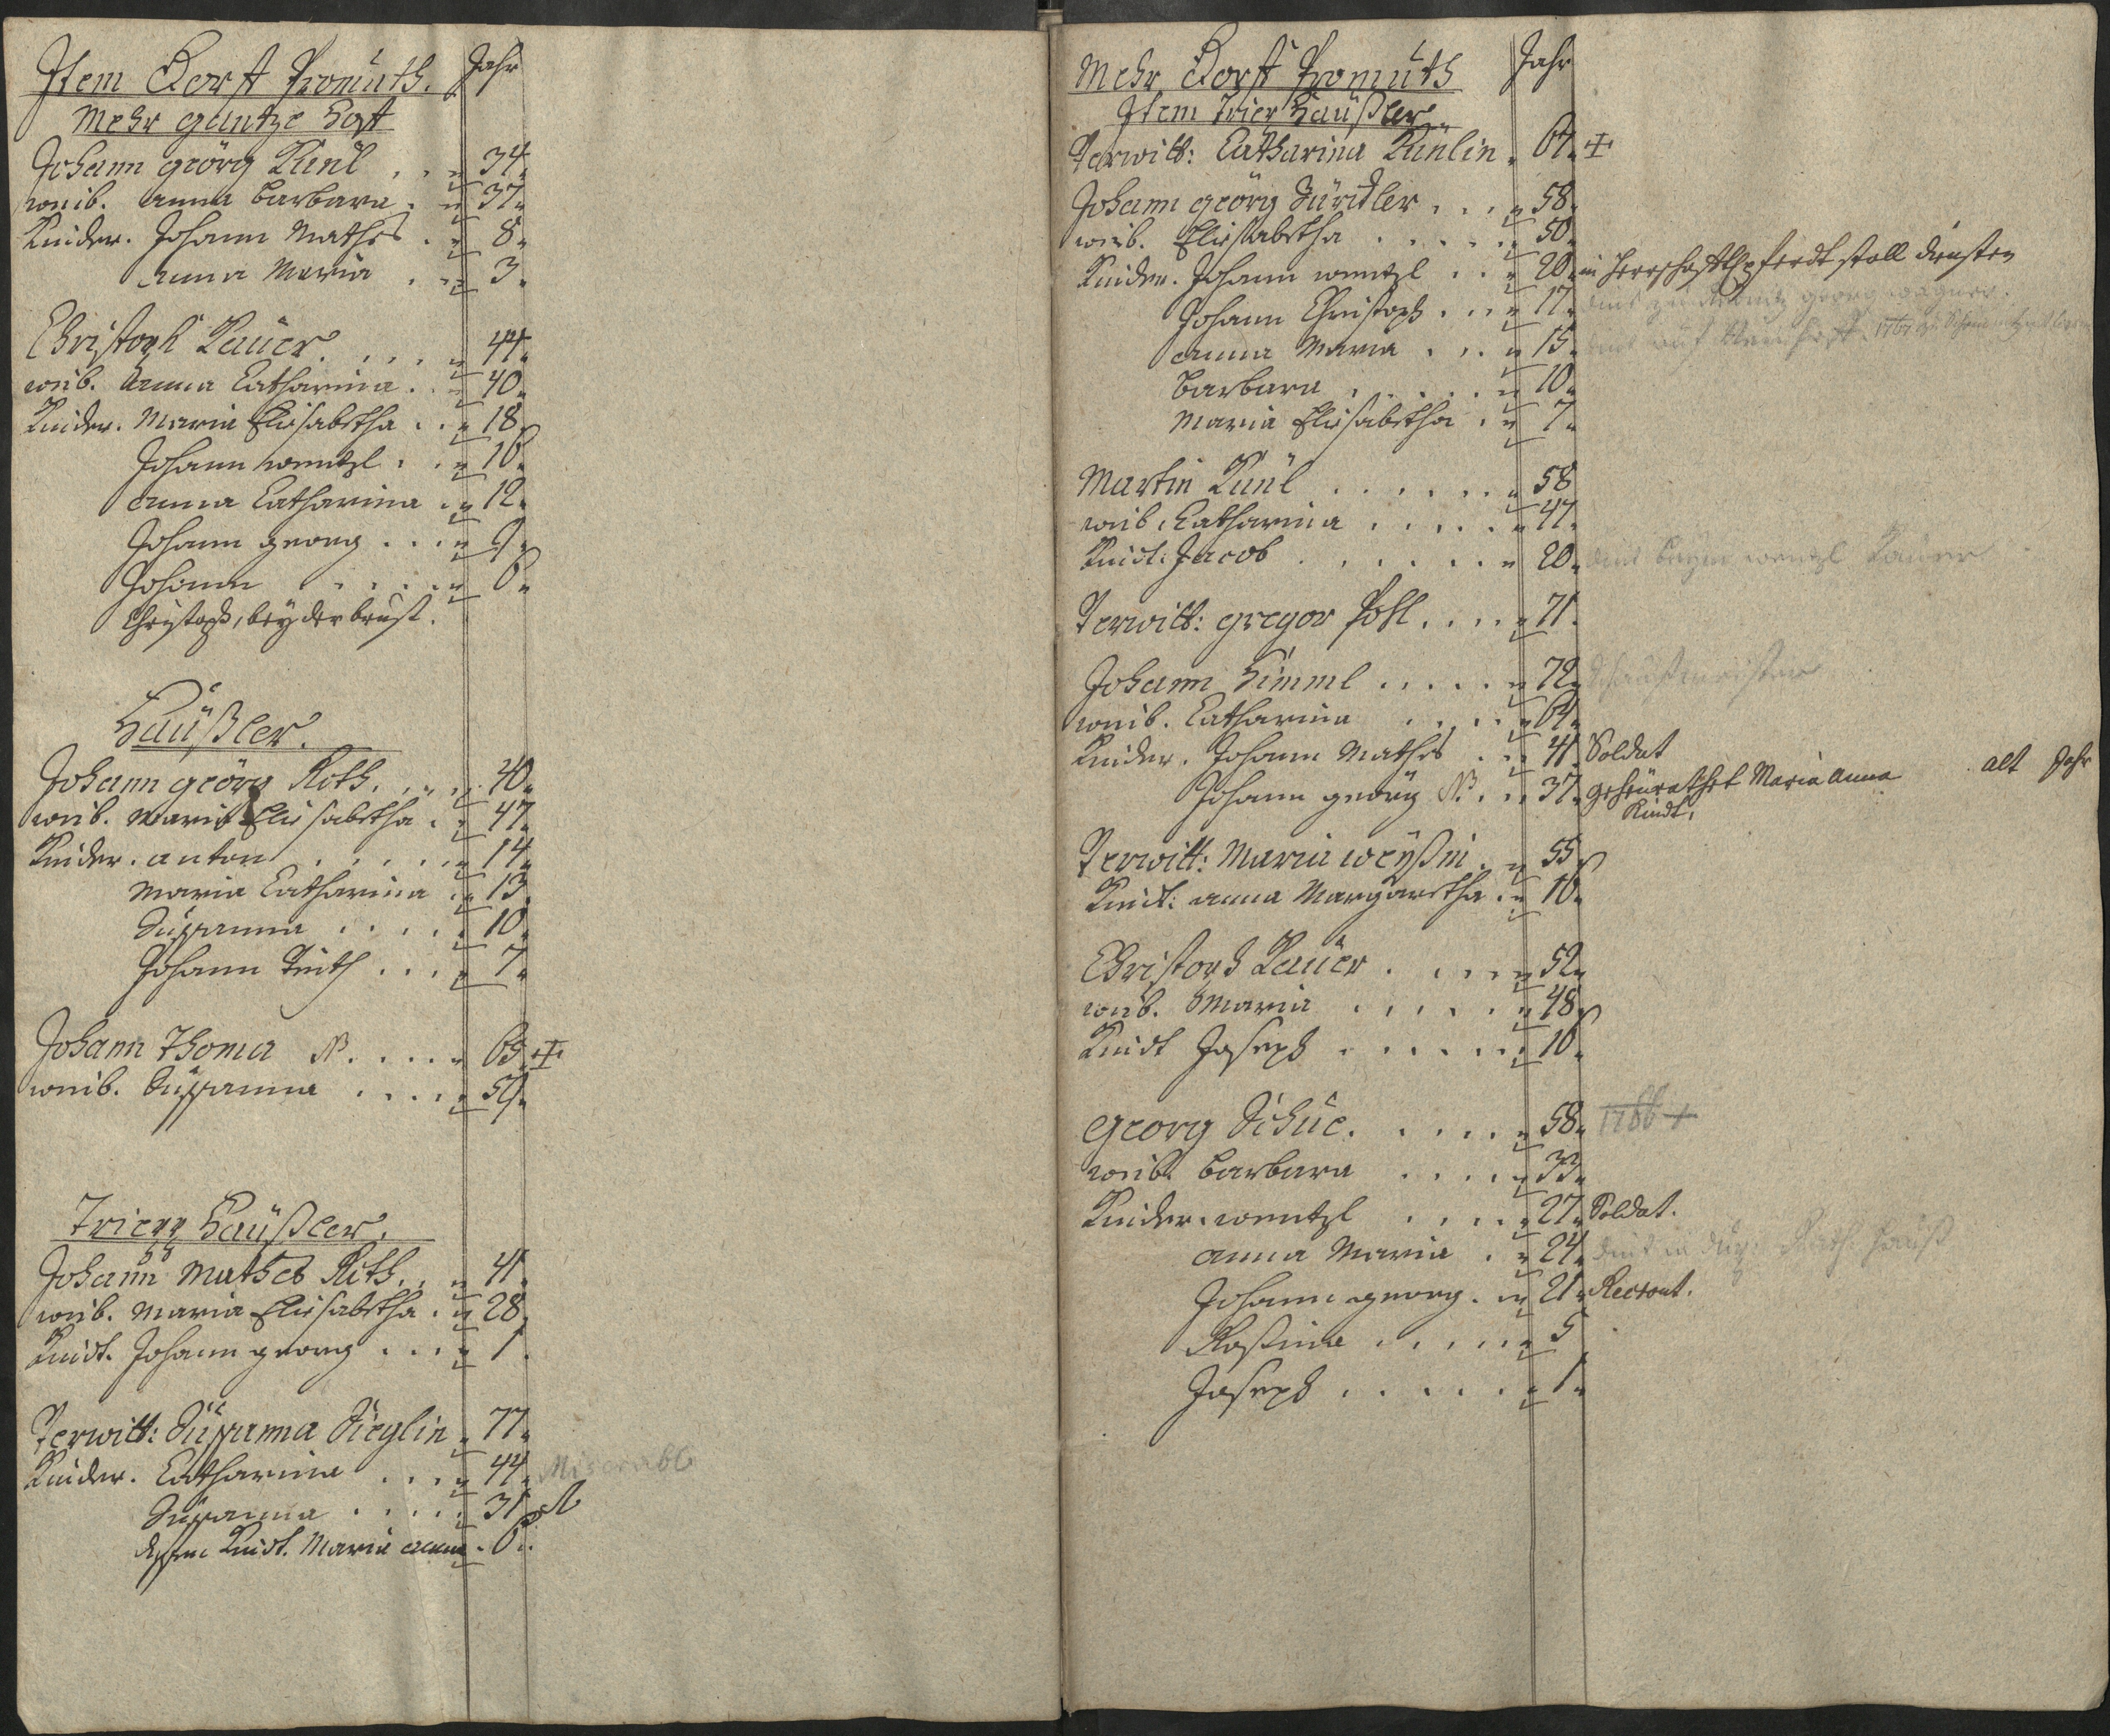 Item Dorff Promuth. Jahr
Mehr gantze Höft
Johann geörg Künl . . " 34.
weib. anna Barbara . " 37.
Kinder. Johann Mathes . " 8.
anna Maria . . " 3.
Christoph Pauer . . . . " 44.
weib. Anna Catharina . . " 40.
Kinder. Maria Elisabetha . . " 18.
Johann wentzl . . " 16.
anna Catharina . " 12.
Johann georg . . . " 9.
Johann . . . . . " 6.
Christoph, bey der brust.
Häußler.
Johann geörg Roth. . . " 40.
weib. Maria Elisabetha . " 47.
Kinder. anton . . . . . " 14.
Maria Catharina . " 13.
Susanna . . . . . 10.
Johann Veith . . . " 7.
Johann Thoma N. . . . . " 63. +
weib. Susanna . . . . " 59.
Häußler.
Johann Mathes Roth. . " 41.
weib. Maria Elisabetha . " 28.
Kindt. Johann georg . . . " 1.
Verwitt: Susanna Sieglin . 77.
Kinder. Catharina . . . " 44. Miserabl
Susanna . . . . . 31.
dessen Kindt. Maria anna . 6.
Mehr Dorff Promuth Jahr
Item Häußler
Verwitt: Catharina Künlin . 67. +
Johann geörg . . . " 58.
weib. Elisabetha . . . . . " 50.
Kinder. Johann wentzl . . " 20. in Herrschaftl pferdt stall diensten
Johann Christoph . . " 17. georg wagner.
anna Maria . . . " 15.
Barbara . . . . . " 10.
Maria Elisabetha . " 7.
Martin Künl . . . . . . " 58
weib. Catharina . . . . . " 47.
Kindt: Jacob . . . . . . " 20. wentzl Pauer
Verwitt: gregor Pohl . . . . " 71.
Johann Himml . . . . . " 72.
weib. Catharina . . . . " 64.
Kinder. Johann Mathes . . " 41. Soldat
Johann geörg N. . . " 37. geheürathet Maria Anna alt Jahr
Kindt.
Verwitt: Maria weyßin . " 55.
Kindt: anna Margaretha . " 16.
Christoph Pauer . . . . " 52.
weib. Maria . . . . . " 48.
Kindt Joseph . . . . . . " 16.
georg Schuc. . . . . . " 58. 1766 +
weib. Barbara . . . . " 33.
Kinder. wentzl . . . . " 27. Soldat.
anna Maria . " 24. Rath Hauß
Johann georg . " 21. Recrout.
Rossina . . . . . " 5
Joseph . . . . . . " 1.